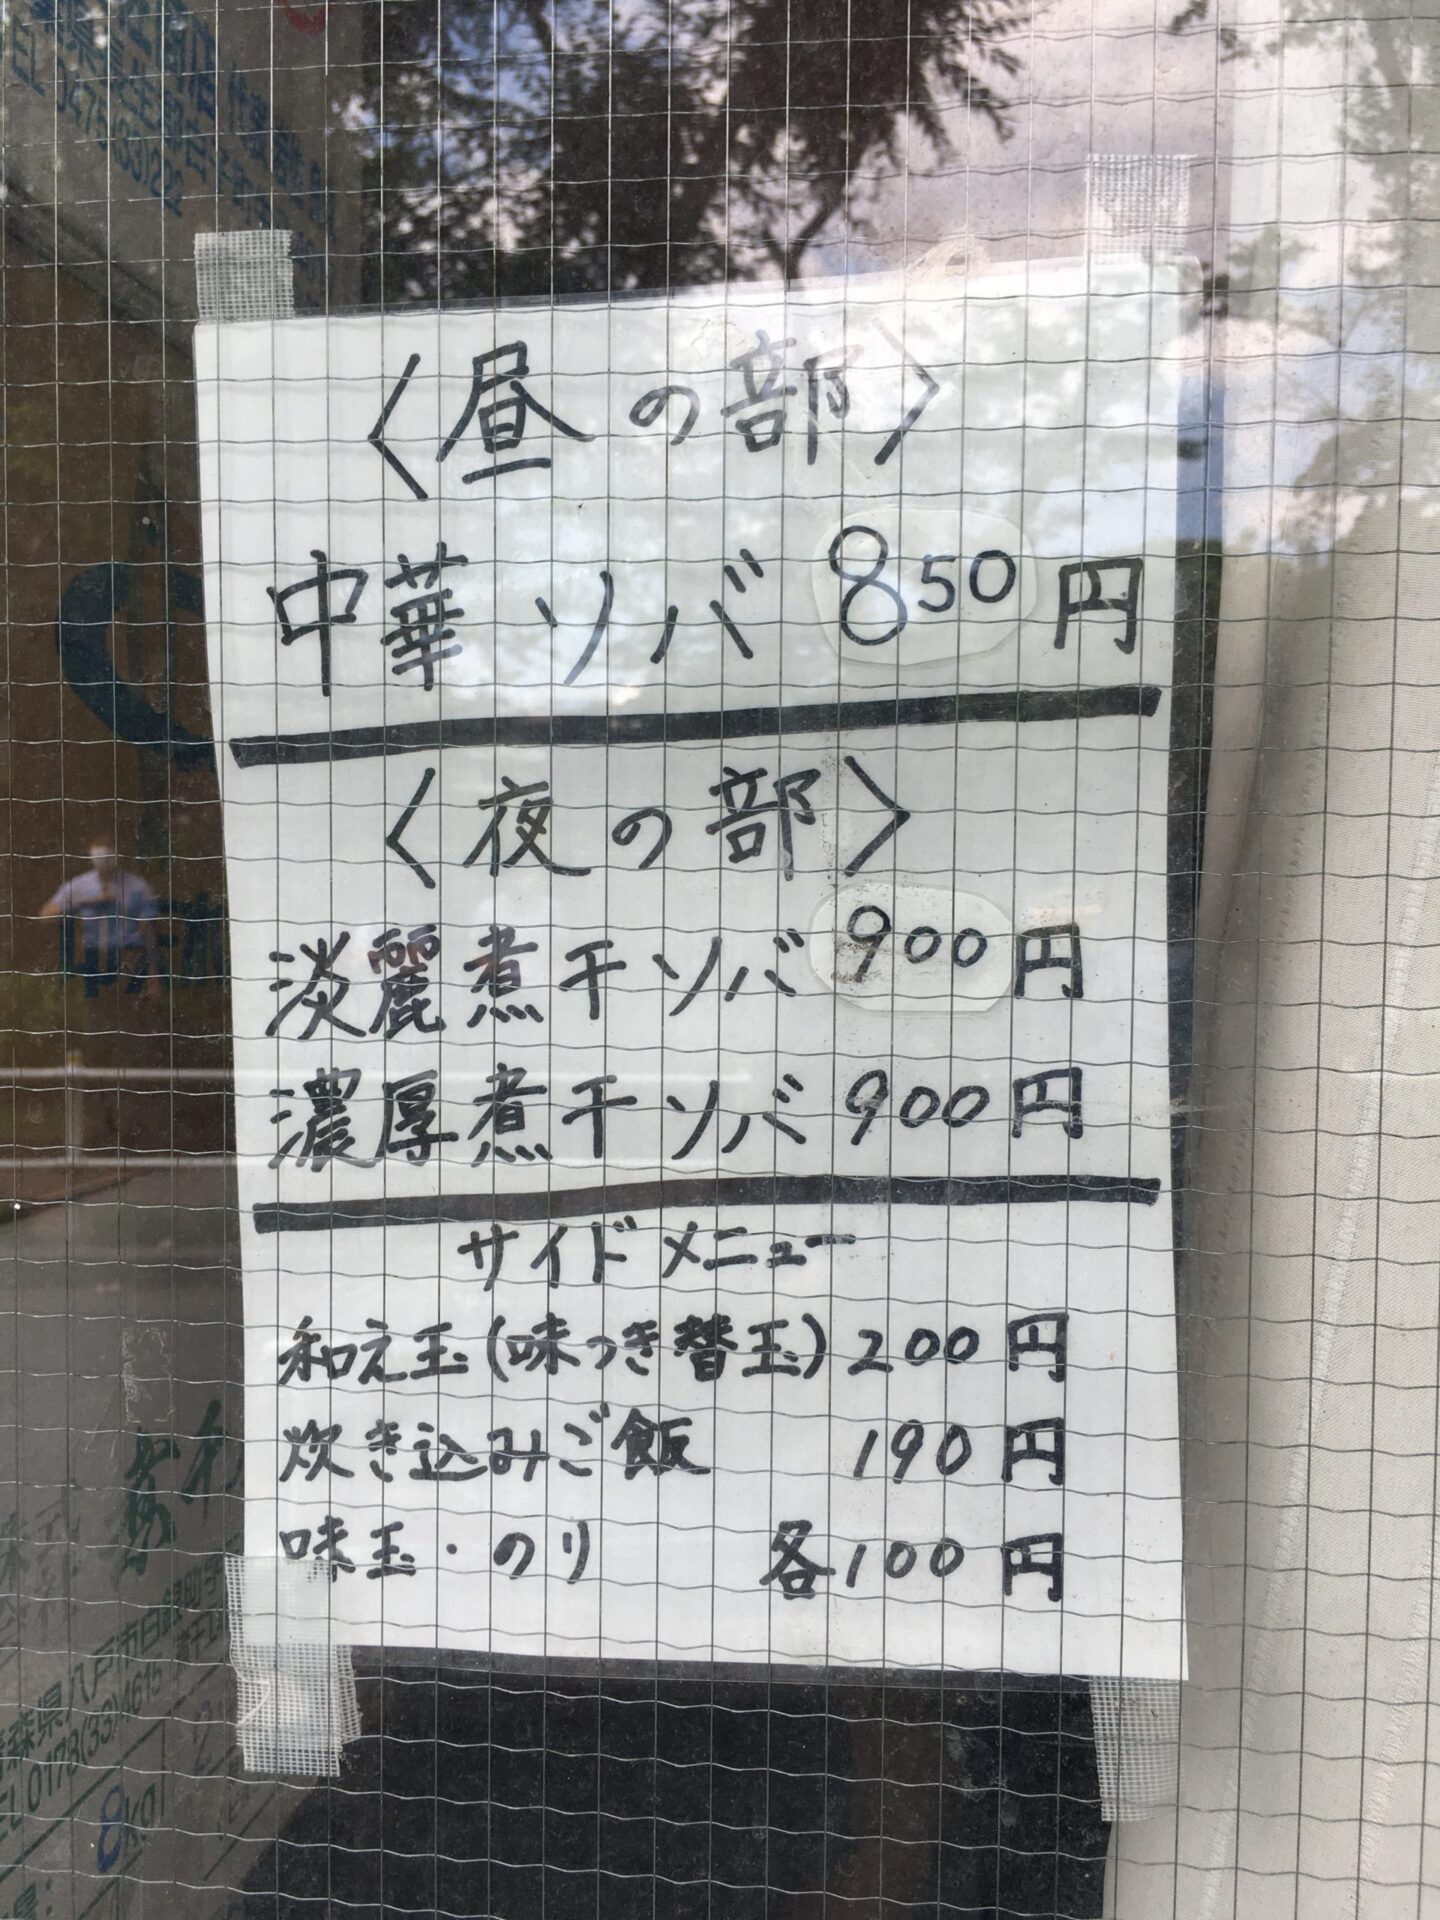 〈昼の部〉
中華ソバ 850円
〈夜の部〉
淡麗煮干ソバ 900円
濃厚煮干ソバ 900円
サイドメニュー
和え玉(味つき替玉) 200円
炊き込みご飯 190円
味玉・のり 各100円
森県八戸市白銀町
0178(33)4615
8kg